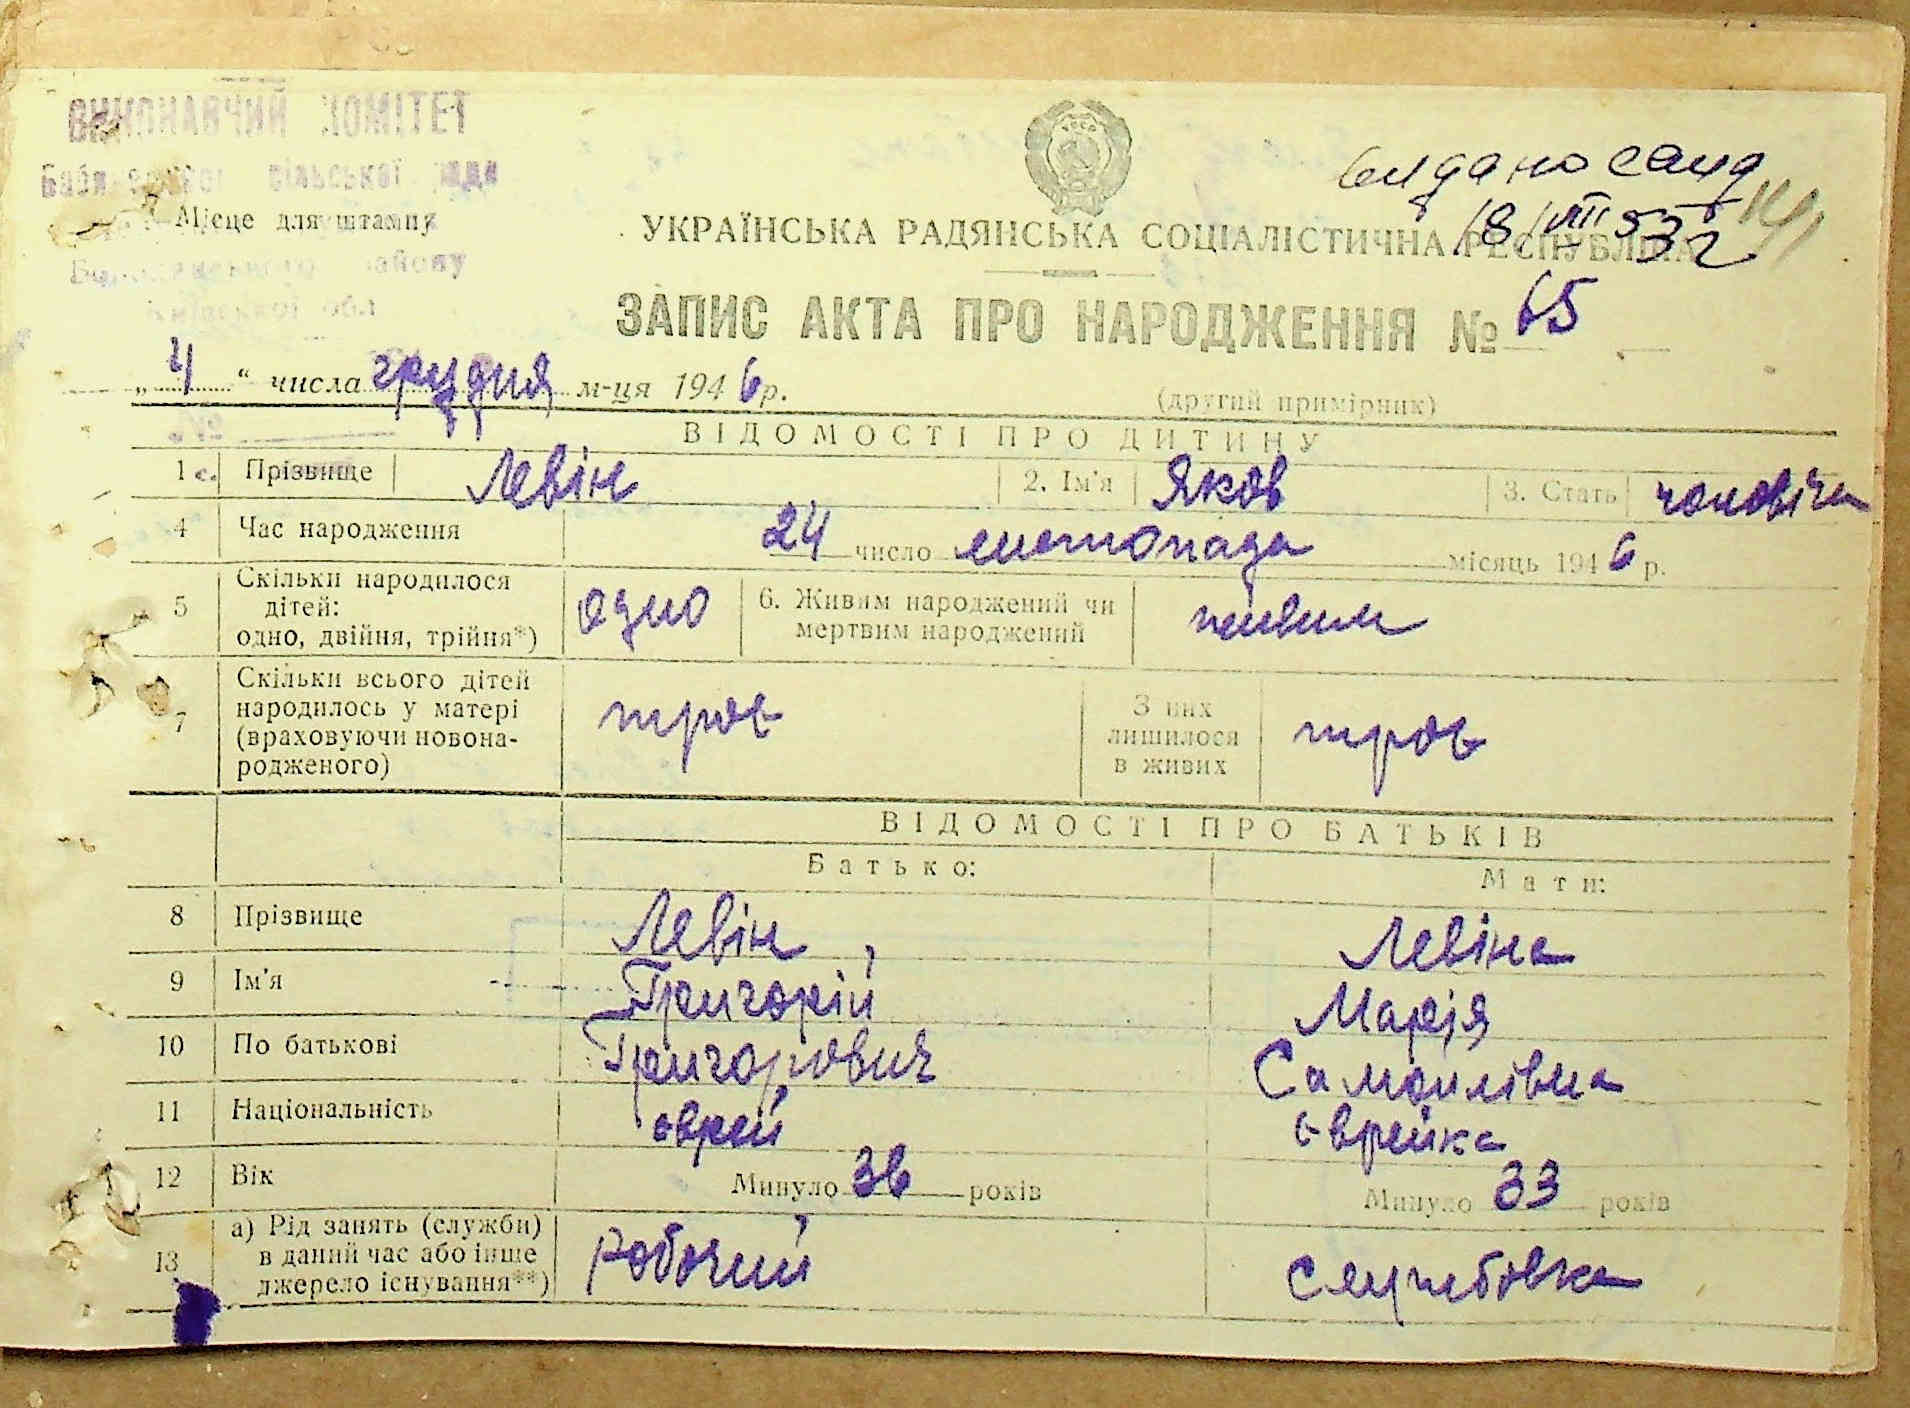 ВИКОНАВЧИЙ КОМІТЕТ
сільської ради
Місце для штампу
району
Київської обл
УРСР
видано свид
18/VIII 53 г
141
УКРАЇНСЬКА РАДЯНСЬКА СОЦІАЛІСТИЧНА РЕСПУБЛІКА
ЗАПИС АКТА ПРО НАРОДЖЕННЯ № 65
„4“ числа грудня м-ця 1946 р.
(другий примірник)
ВІДОМОСТІ ПРО ДИТИНУ
1 Прізвище Левін 2. Ім'я Яков 3. Стать чоловіча
4 Час народження 24 число листопада місяць 1946 р.
5 Скільки народилося дітей: одно, двійня, трійня*) одно 6. Живим народжений чи мертвим народжений живим
7 Скільки всього дітей народилось у матері (враховуючи новонародженого) троє З них лишилося в живих троє
ВІДОМОСТІ ПРО БАТЬКІВ
Батько: Мати:
8 Прізвище Левін Левіна
9 Ім'я Григорій Марія
10 По батькові Григорович Самойлівна
11 Національність єврей єврейка
12 Вік Минуло 36 років Минуло 33 років
13 а) Рід занять (служби) в даний час або інше джерело існування**) робочий службовка